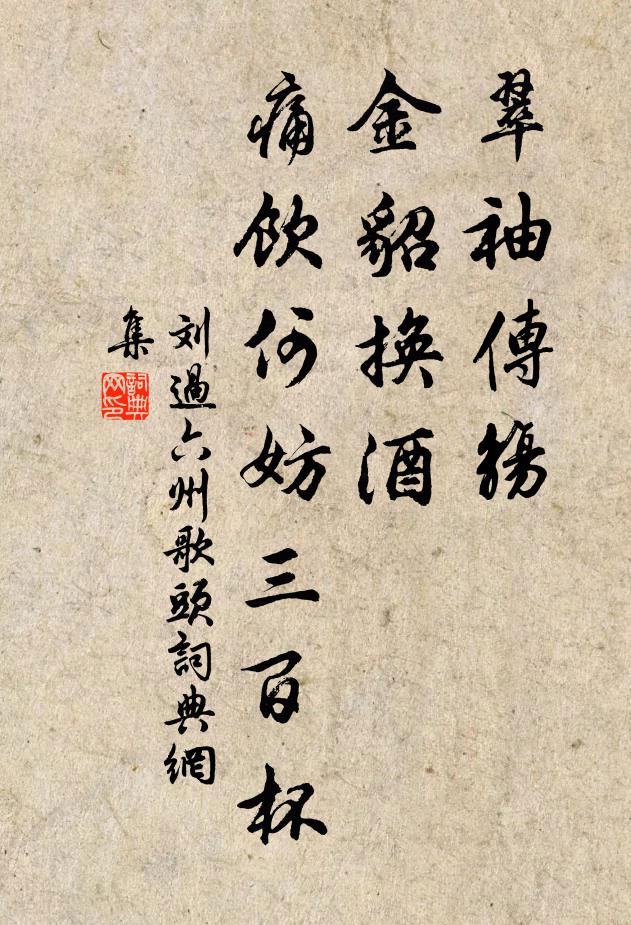 翠袖傳觴
金貂換酒
痛飲何妨三百杯
刘過六州歌頭詞典網
集
詞典网印